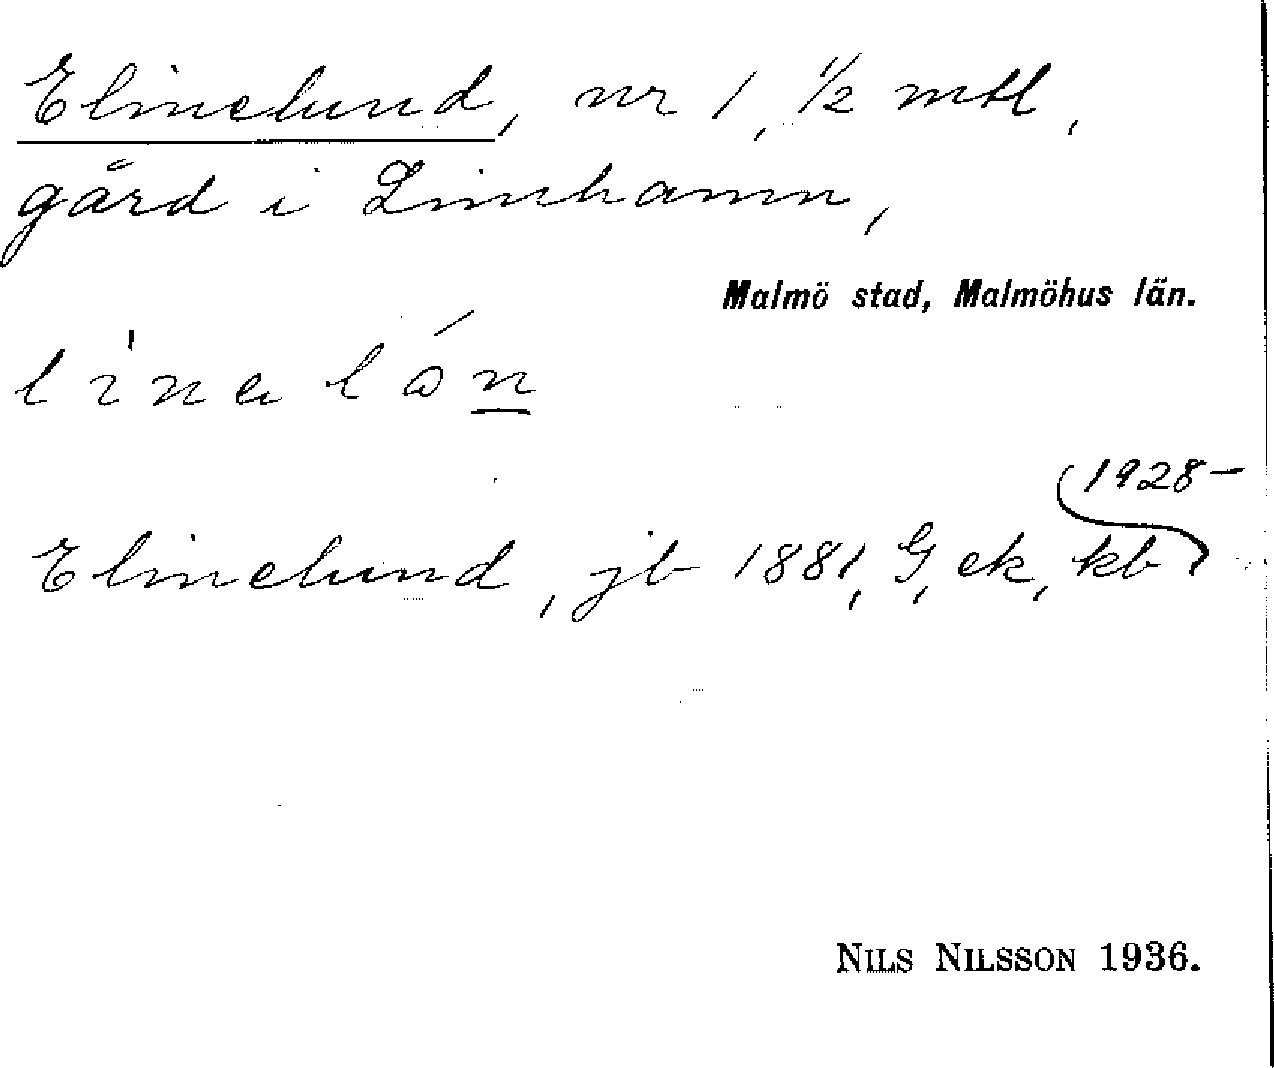 Elinelund, nr 1, 1/2 mtl,
gård i Limhamn,
Malmö stad, Malmöhus län.
Elinelund, jb 1881, G, ek, kb 1928-
NILS NILSSON 1936.